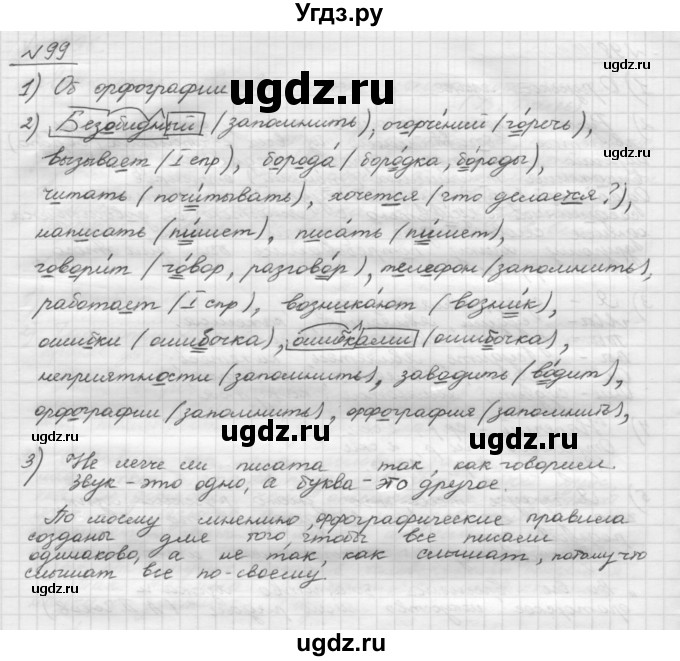 Угдз.ру
№99
1) Об орфографии
2) Безобидный (запомнить), огорчений (горечь),
вызывает (I спр), борода (бородка, бороды),
читать (почитывать), хочется (что делается?),
написать (пишет), писать (пишет),
говорит (говор, разговор), телефон (запомнить),
работает (I спр), возникают (возник),
ошибки (ошибочка), ошибками (ошибочка),
неприятности (запомнить), заводить (водит),
орфографии (запомнить), орфография (запомнить),
3) Не легче ли писата так, как говорим.
Звук - это одно, а буква - это другое.
По моему мнению, орфографические правила
созданы для того, чтобы все писали
одинаково, а не так, как слышат, потому что
слышат все по-своему
ugdz.ru
ugdz.ru
ugdz.ru
ugdz.ru
ugdz.ru
ugdz.ru
ugdz.ru
ugdz.ru
ugdz.ru
ugdz.ru